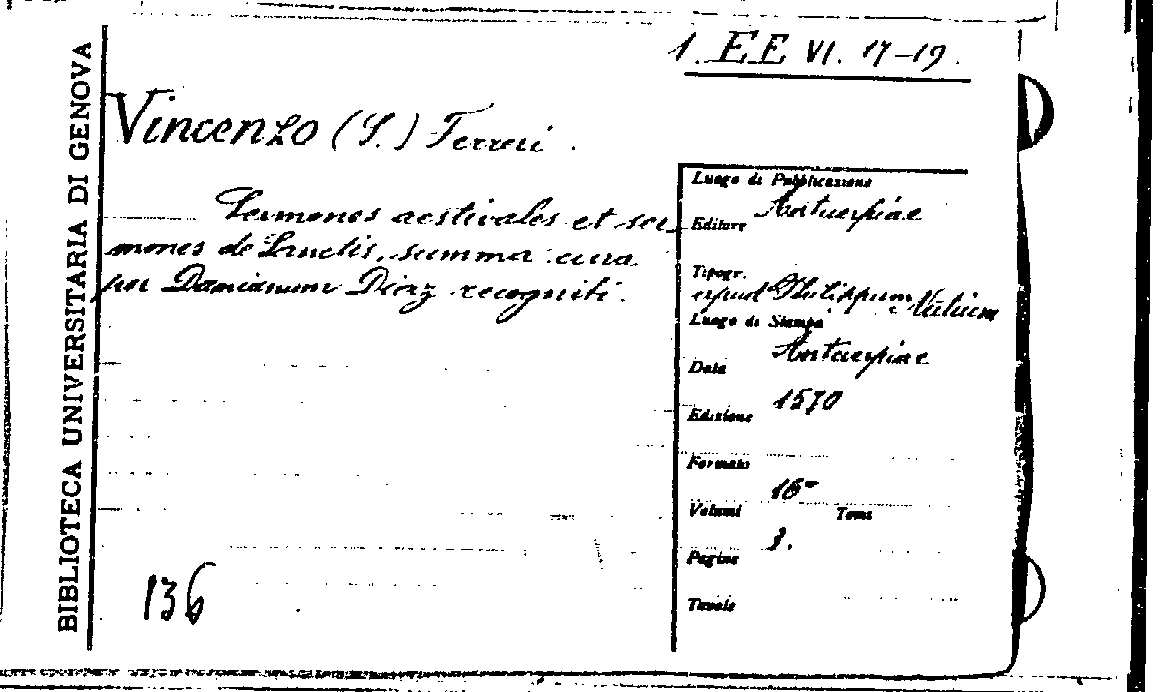 BIBLIOTECA UNIVERSITARIA DI GENOVA
1. EE VI. 17-19.
Vincenzo (S.) Ferreri.
Sermones aestivales et ser-
mones de Sanctis, summa cura
per Damianum Diaz recogniti.
Luogo di Pubblicazione
Antuerpiae
Editore
Tipogr.
apud Philippum Nutium
Luogo di Stampa
Antuerpiae
Data
1570
Edizione
Formato
16º
Volumi Tomi
3.
Pagine
Tavole
136